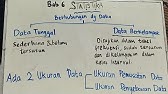 Bab 6 Statistika
Berhubungan dg Data
Data Tunggal
Data Berkelompok
Sederhana & belum
tersusun
Disajikan dalam tabel
frekuensi, sudah tersusun
dan dikelompokan dalam
kelas interval
Ada 2 Ukuran Data
Ukuran Pemusatan Data
Ukuran Penyebaran Data